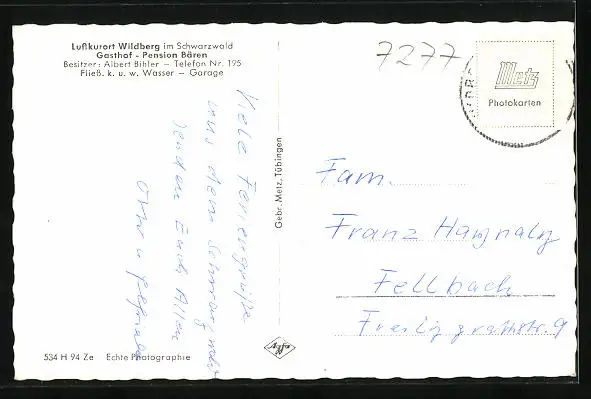 Luftkurort Wildberg im Schwarzwald
Gasthof - Pension Bären
Besitzer: Albert Bihler – Telefon Nr. 195
Fließ. k. u. w. Wasser – Garage
7277
Metz
Photokarten
Viele Feriengrüße
aus dem Schwarzwald
senden Euch Allen
Gebr. Metz, Tübingen
Fam.
Franz
Fellbach
9
534 H 94 Ze Echte Photographie
Agfa